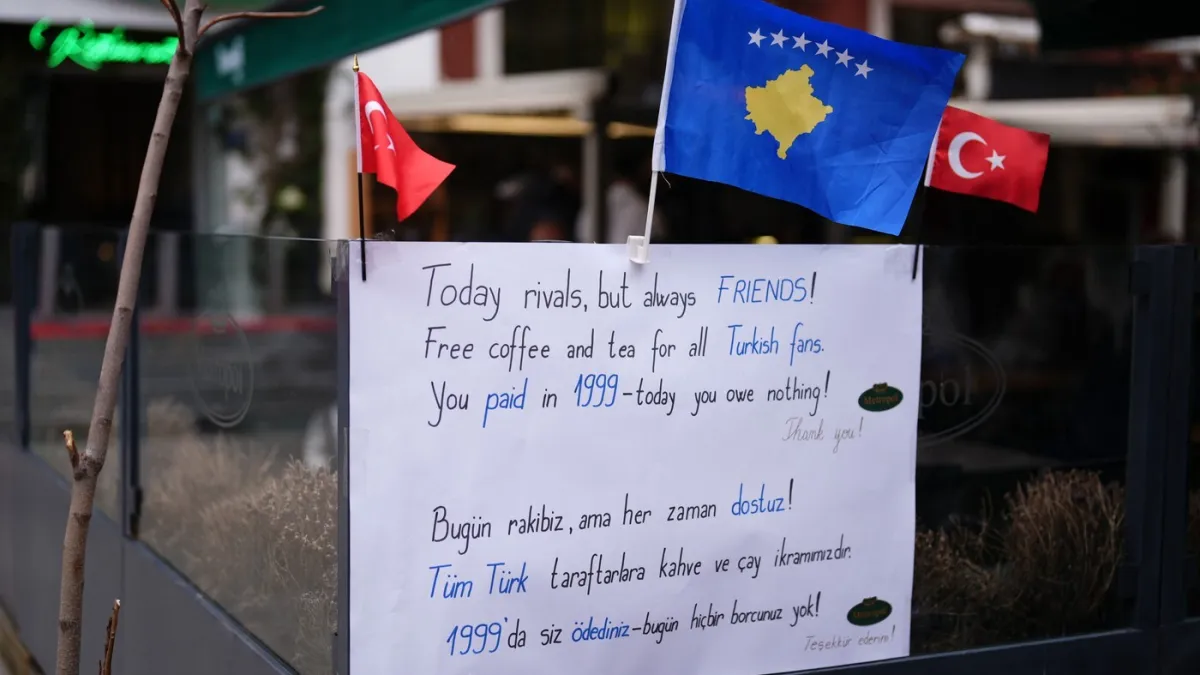 Restaurant
Today rivals, but always FRIENDS!
Free coffee and tea for all Turkish fans.
You paid in 1999-today you owe nothing!
Metropol
pol
Thank you!
Bugün rakibiz, ama her zaman dostuz!
Tüm Türk taraftarlara kahve ve çay ikramımızdır.
1999'da siz ödediniz-bugün hiçbir borcunuz yok!
Teşekkür ederim!